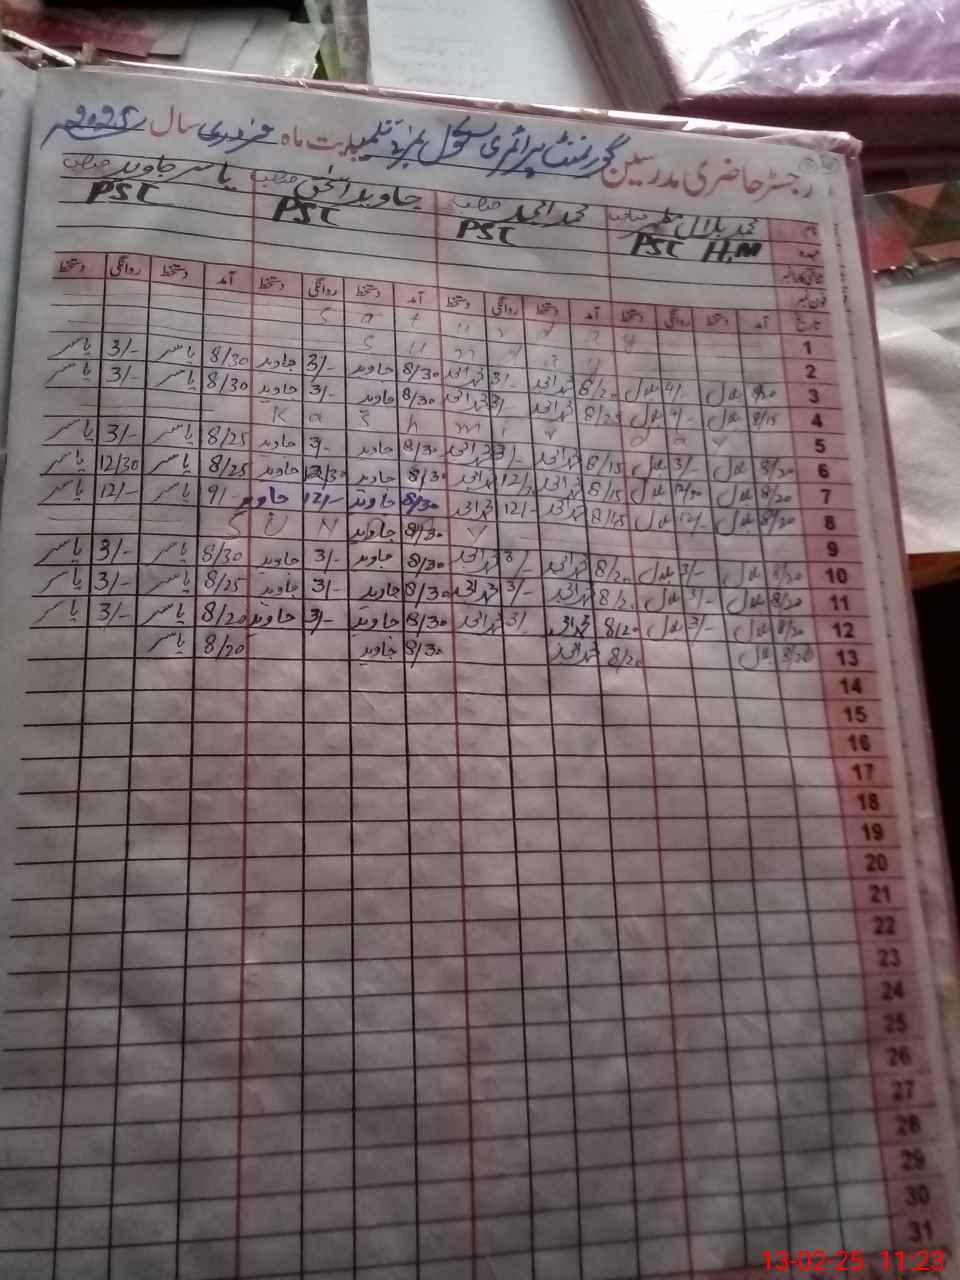 رجسٹر حاضری مدرسین گورنمنٹ پرائمری سکول بابت ماہ فروری سال 2025
نام محمد بلال مظہر صاحب محمد امجد صاحب جاوید اسحٰق صاحب یاسر جاوید صاحب
عہدہ PST H.M PST PST PST
شناختی کارڈ نمبر
فون نمبر
تاریخ آمد دستخط روانگی دستخط آمد دستخط روانگی دستخط آمد دستخط روانگی دستخط آمد دستخط روانگی دستخط
1 Saturday
2 Sunday
3 8/20 بلال 4/- بلال 8/20 محمد امجد 3/- محمد امجد 8/30 جاوید 3/- جاوید 8/30 یاسر 3/- یاسر
4 8/15 بلال بلال 8/25 محمد امجد 3/- محمد امجد 8/30 جاوید 3/- جاوید 8/30 یاسر 3/- یاسر
5 Kashmir day
6 8/20 بلال 3/- بلال 8/15 محمد امجد 3/- محمد امجد 8/30 جاوید 3/- جاوید 8/25 یاسر 3/- یاسر
7 8/20 بلال 12/30 بلال 8/15 محمد امجد محمد امجد 8/30 جاوید 12/30 جاوید 8/25 یاسر 12/30 یاسر
8 8/20 بلال 12/- بلال 8/15 محمد امجد 12/- محمد امجد 8/30 جاوید 12/- جاوید 9/- یاسر 12/- یاسر
9 8/30 جاوید
10 8/20 بلال 3/- بلال 8/20 محمد امجد 3/- محمد امجد 8/30 جاوید 3/- جاوید 8/30 یاسر 3/- یاسر
11 8/20 بلال 3/- بلال 8/20 محمد امجد 3/- محمد امجد 8/30 جاوید 3/- جاوید 8/25 یاسر 3/- یاسر
12 8/20 بلال 3/- بلال 8/20 محمد امجد 3/- محمد امجد 8/30 جاوید 3/- جاوید 8/20 یاسر 3/- یاسر
13 8/20 بلال 8/20 محمد امجد 8/30 جاوید 8/20 یاسر
14
15
16
17
18
19
20
21
22
23
24
25
26
27
28
29
30
31
13-02-25 11:23